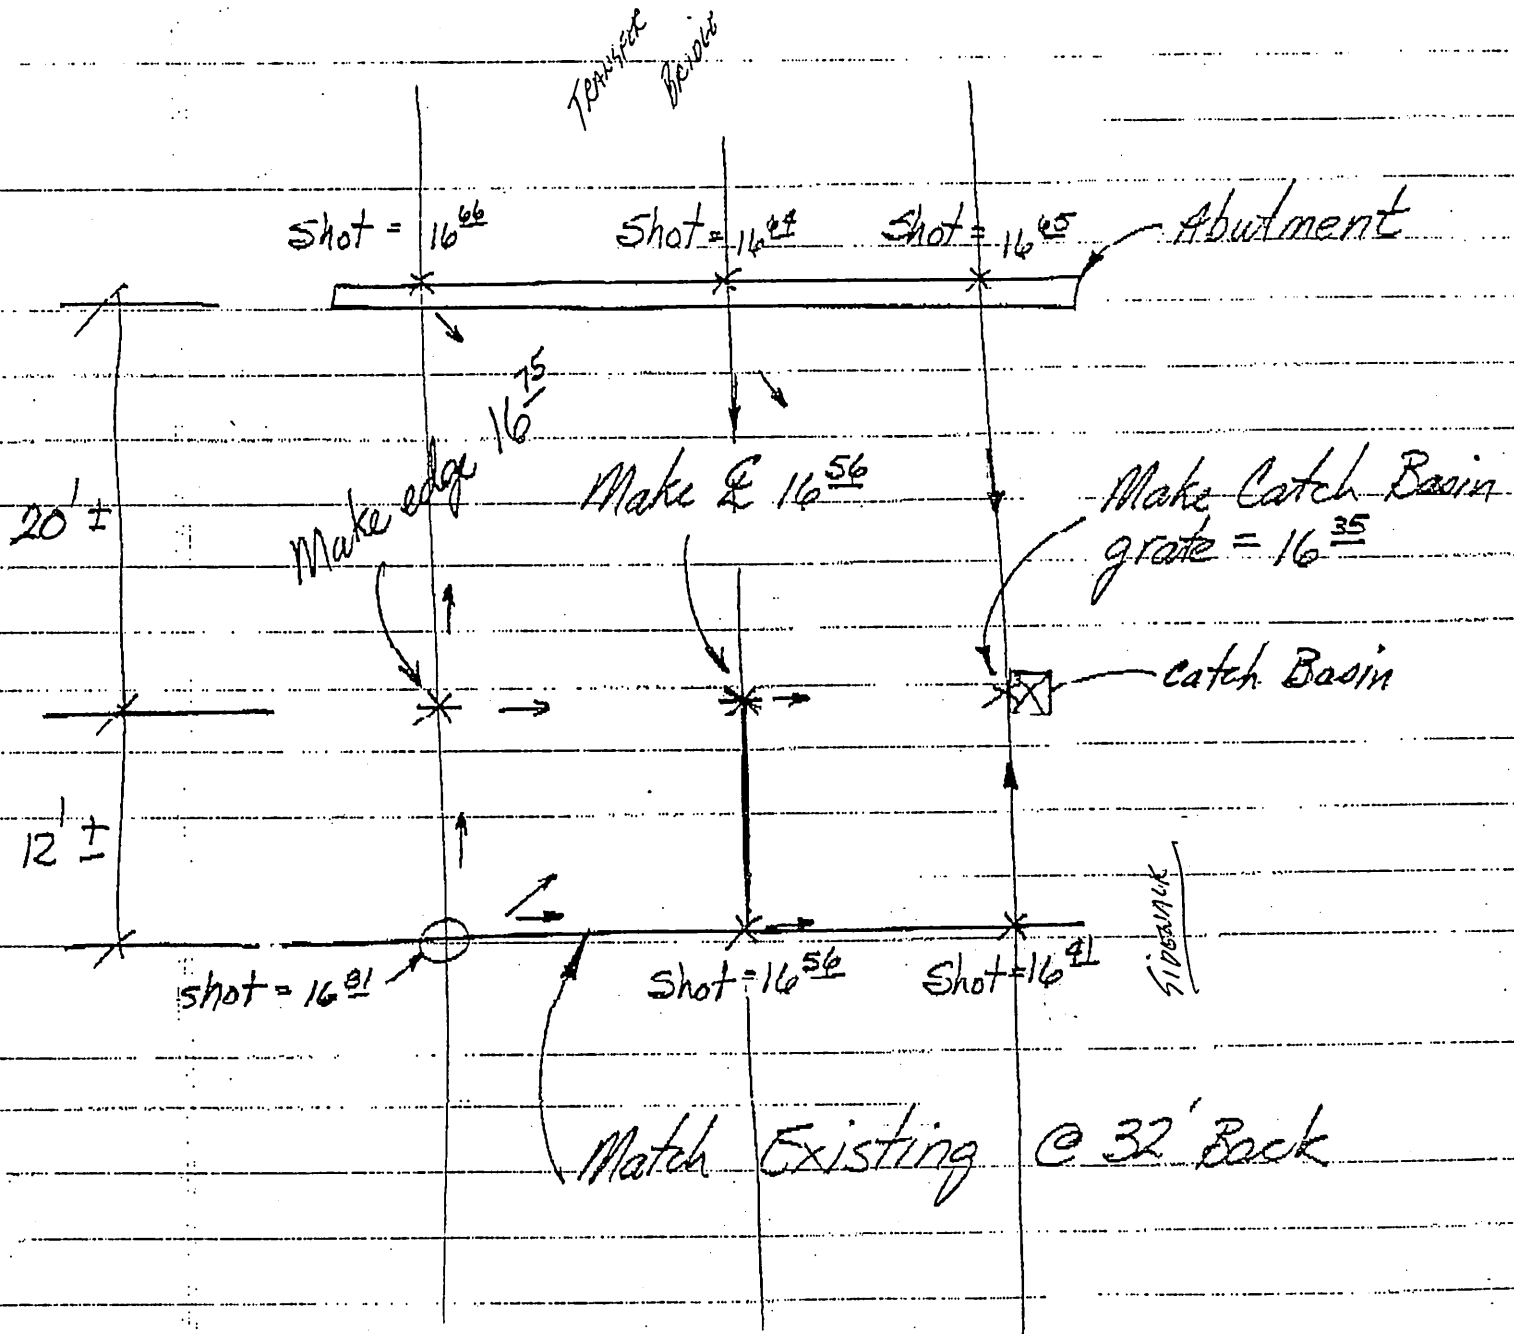 TRANSFER
BRIDGE
Shot = 16 66
Shot = 16 64
Shot = 16 65
Abutment
Make edge 16 75
Make ℄ 16 56
Make Catch Basin
grate = 16 35
20' ±
Catch Basin
12' ±
SIDEWALK
shot = 16 81
Shot = 16 56
Shot = 16 41
Match Existing @ 32' Back